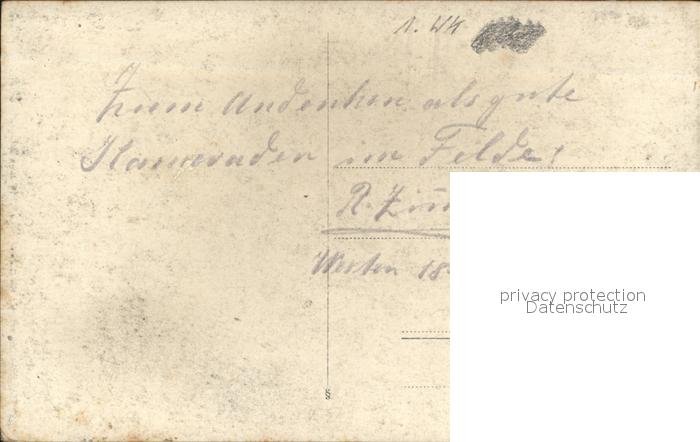 1. WK
Zum Andenken als gute
Kameraden im Felde!
R. Zim
Westen 18
privacy protection
Datenschutz
§